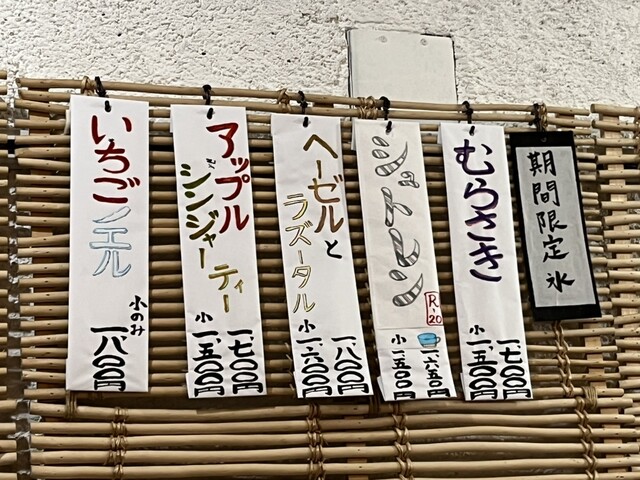 期間限定氷
むらさき
一七〇〇円
小一、五〇〇円
シュトレン
R-20
一六五〇円
小一五〇〇円
ヘーゼルと
ラズータル
一、八〇〇円
小一、六〇〇円
アップル
ジンジャー
ティー
一七〇〇円
小一、五〇〇円
いちごノエル
小のみ
一八〇〇円